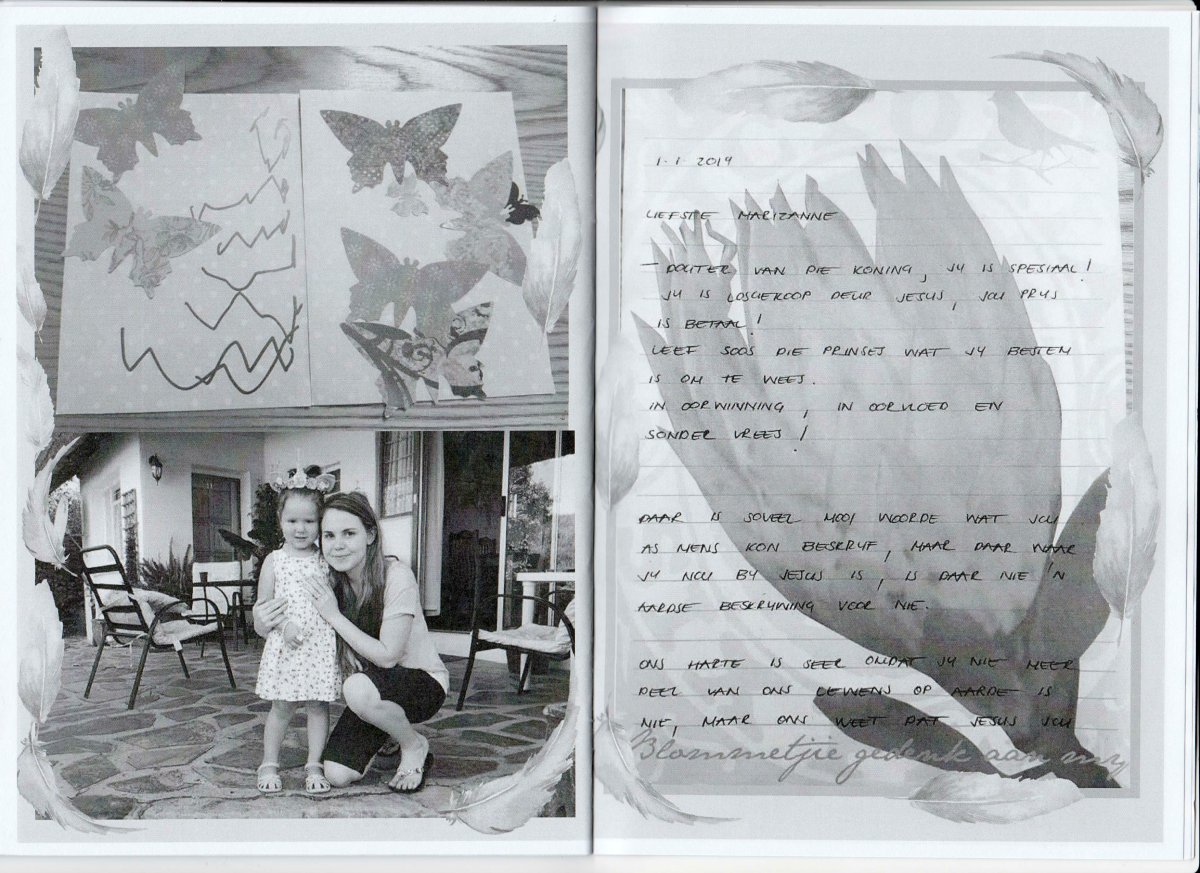 1.1.2019
LIEFSTE MARIZANNE
- DOGTER VAN DIE KONING, JY IS SPESIAAL!
JY IS LOSGEKOOP DEUR JESUS, JOU PRYS
IS BETAAL!
LEEF SOOS DIE PRINSES WAT JY BESTEM
IS OM TE WEES.
IN OORWINNING, IN OORVLOED EN
SONDER VREES!
DAAR IS SOVEEL MOOI WOORDE WAT JOU
AS MENS KON BESKRYF, MAAR DAAR WAAR
JY NOU BY JESUS IS, IS DAAR NIE 'N
AARDSE BESKRYWING VOOR NIE.
ONS HARTE IS SEER OMDAT JY NIE MEER
DEEL VAN ONS LEWENS OP AARDE IS
NIE, MAAR ONS WEET DAT JESUS JOU
Blommetjie gedenk aan my